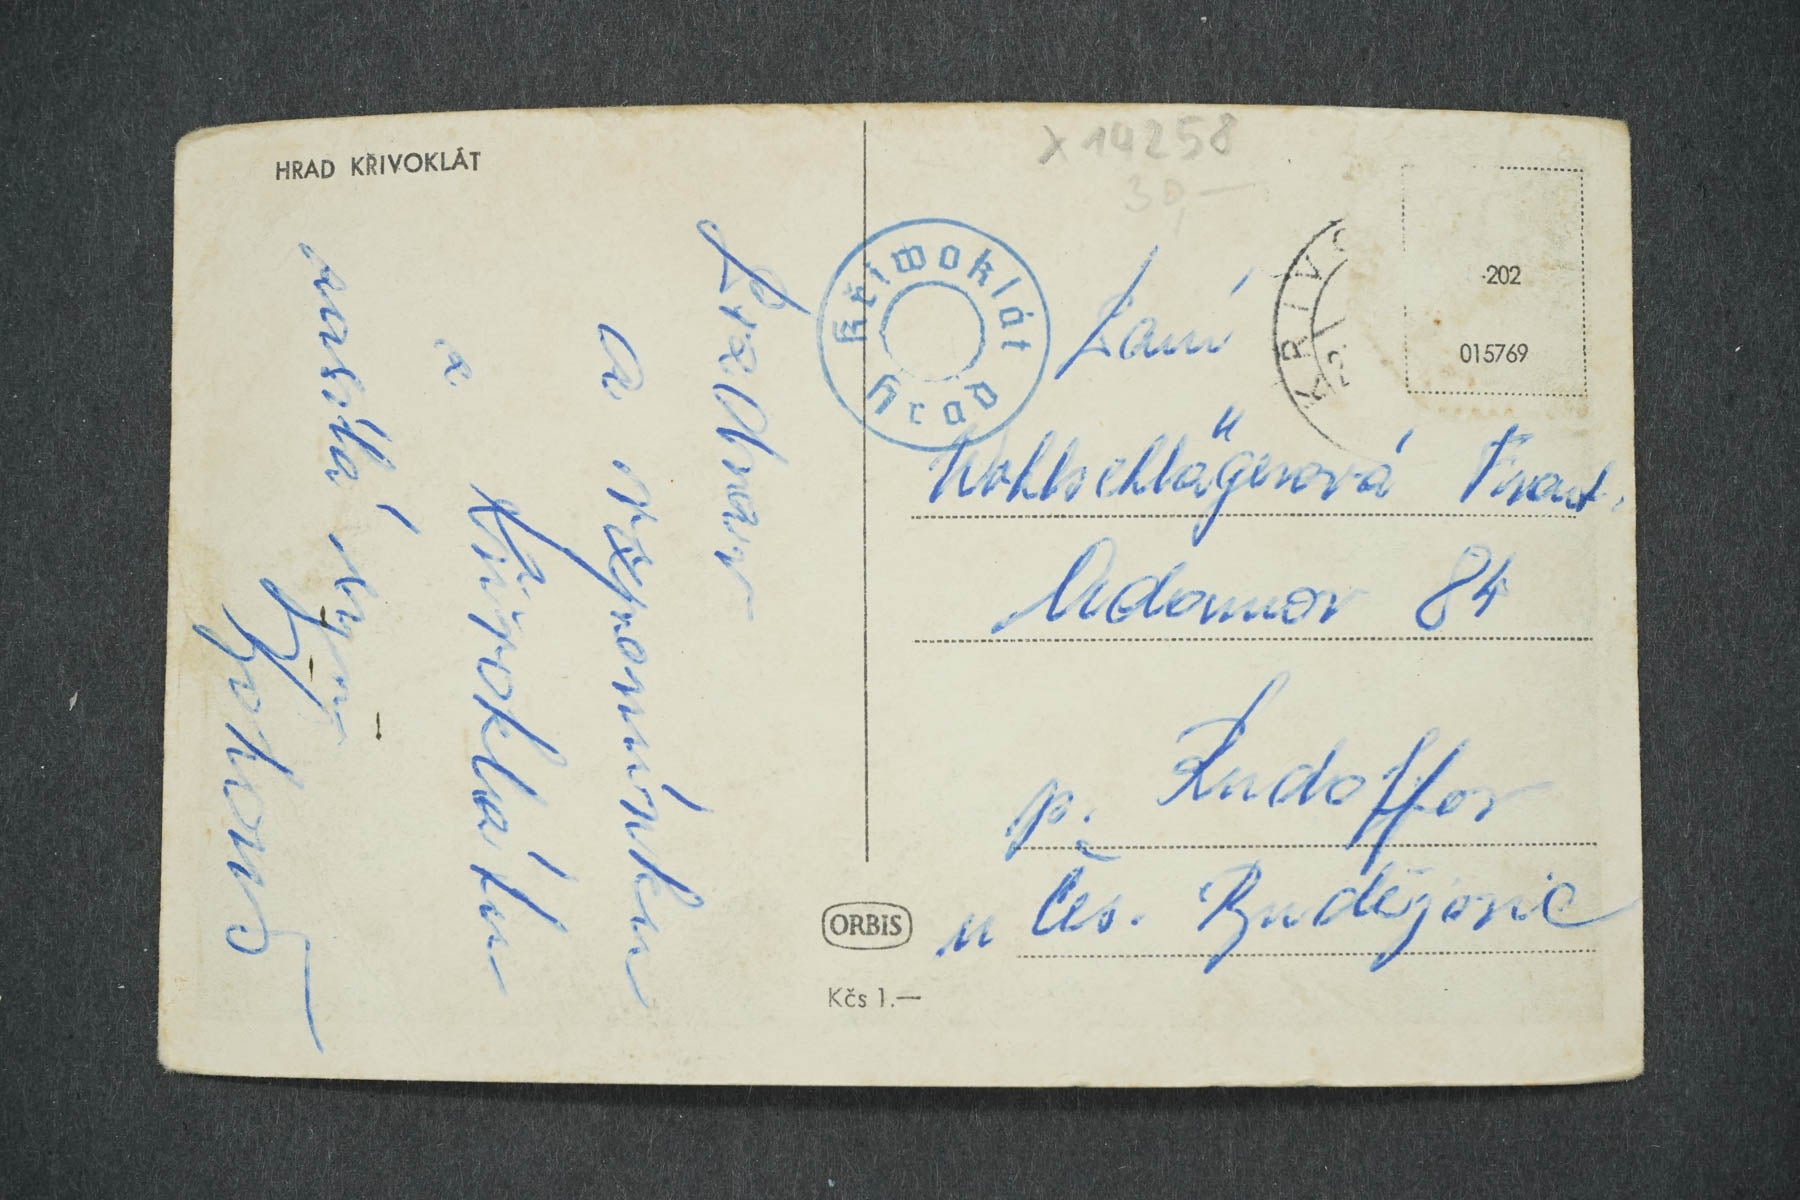 HRAD KŘIVOKLÁT
Pozdrav
a vzpomínku
z Křivoklátu
zasílá
x 14258
30,—
Křiwoklát
Hrad
KŘIVO
22.
-202
015769
Paní
Wohlschlägerová Frant.
Adamov 84
p. Rudolfov
u Čes. Budějovic
ORBIS
Kčs 1.—